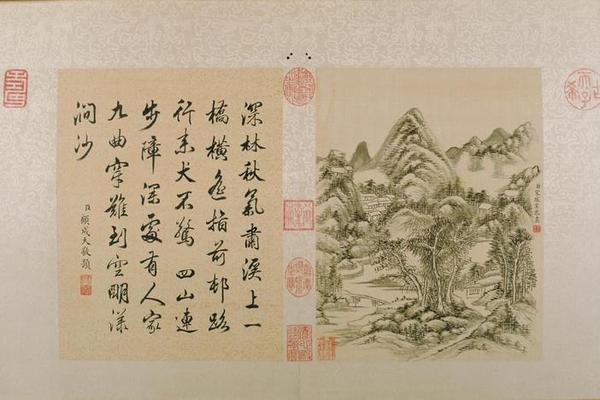 深林秋氣肅溪上一
橋橫遙指前邨路
行来犬不驚四山連
步障深處有人家
九曲穿難到空明漾
澗沙
臣顧成天敬題